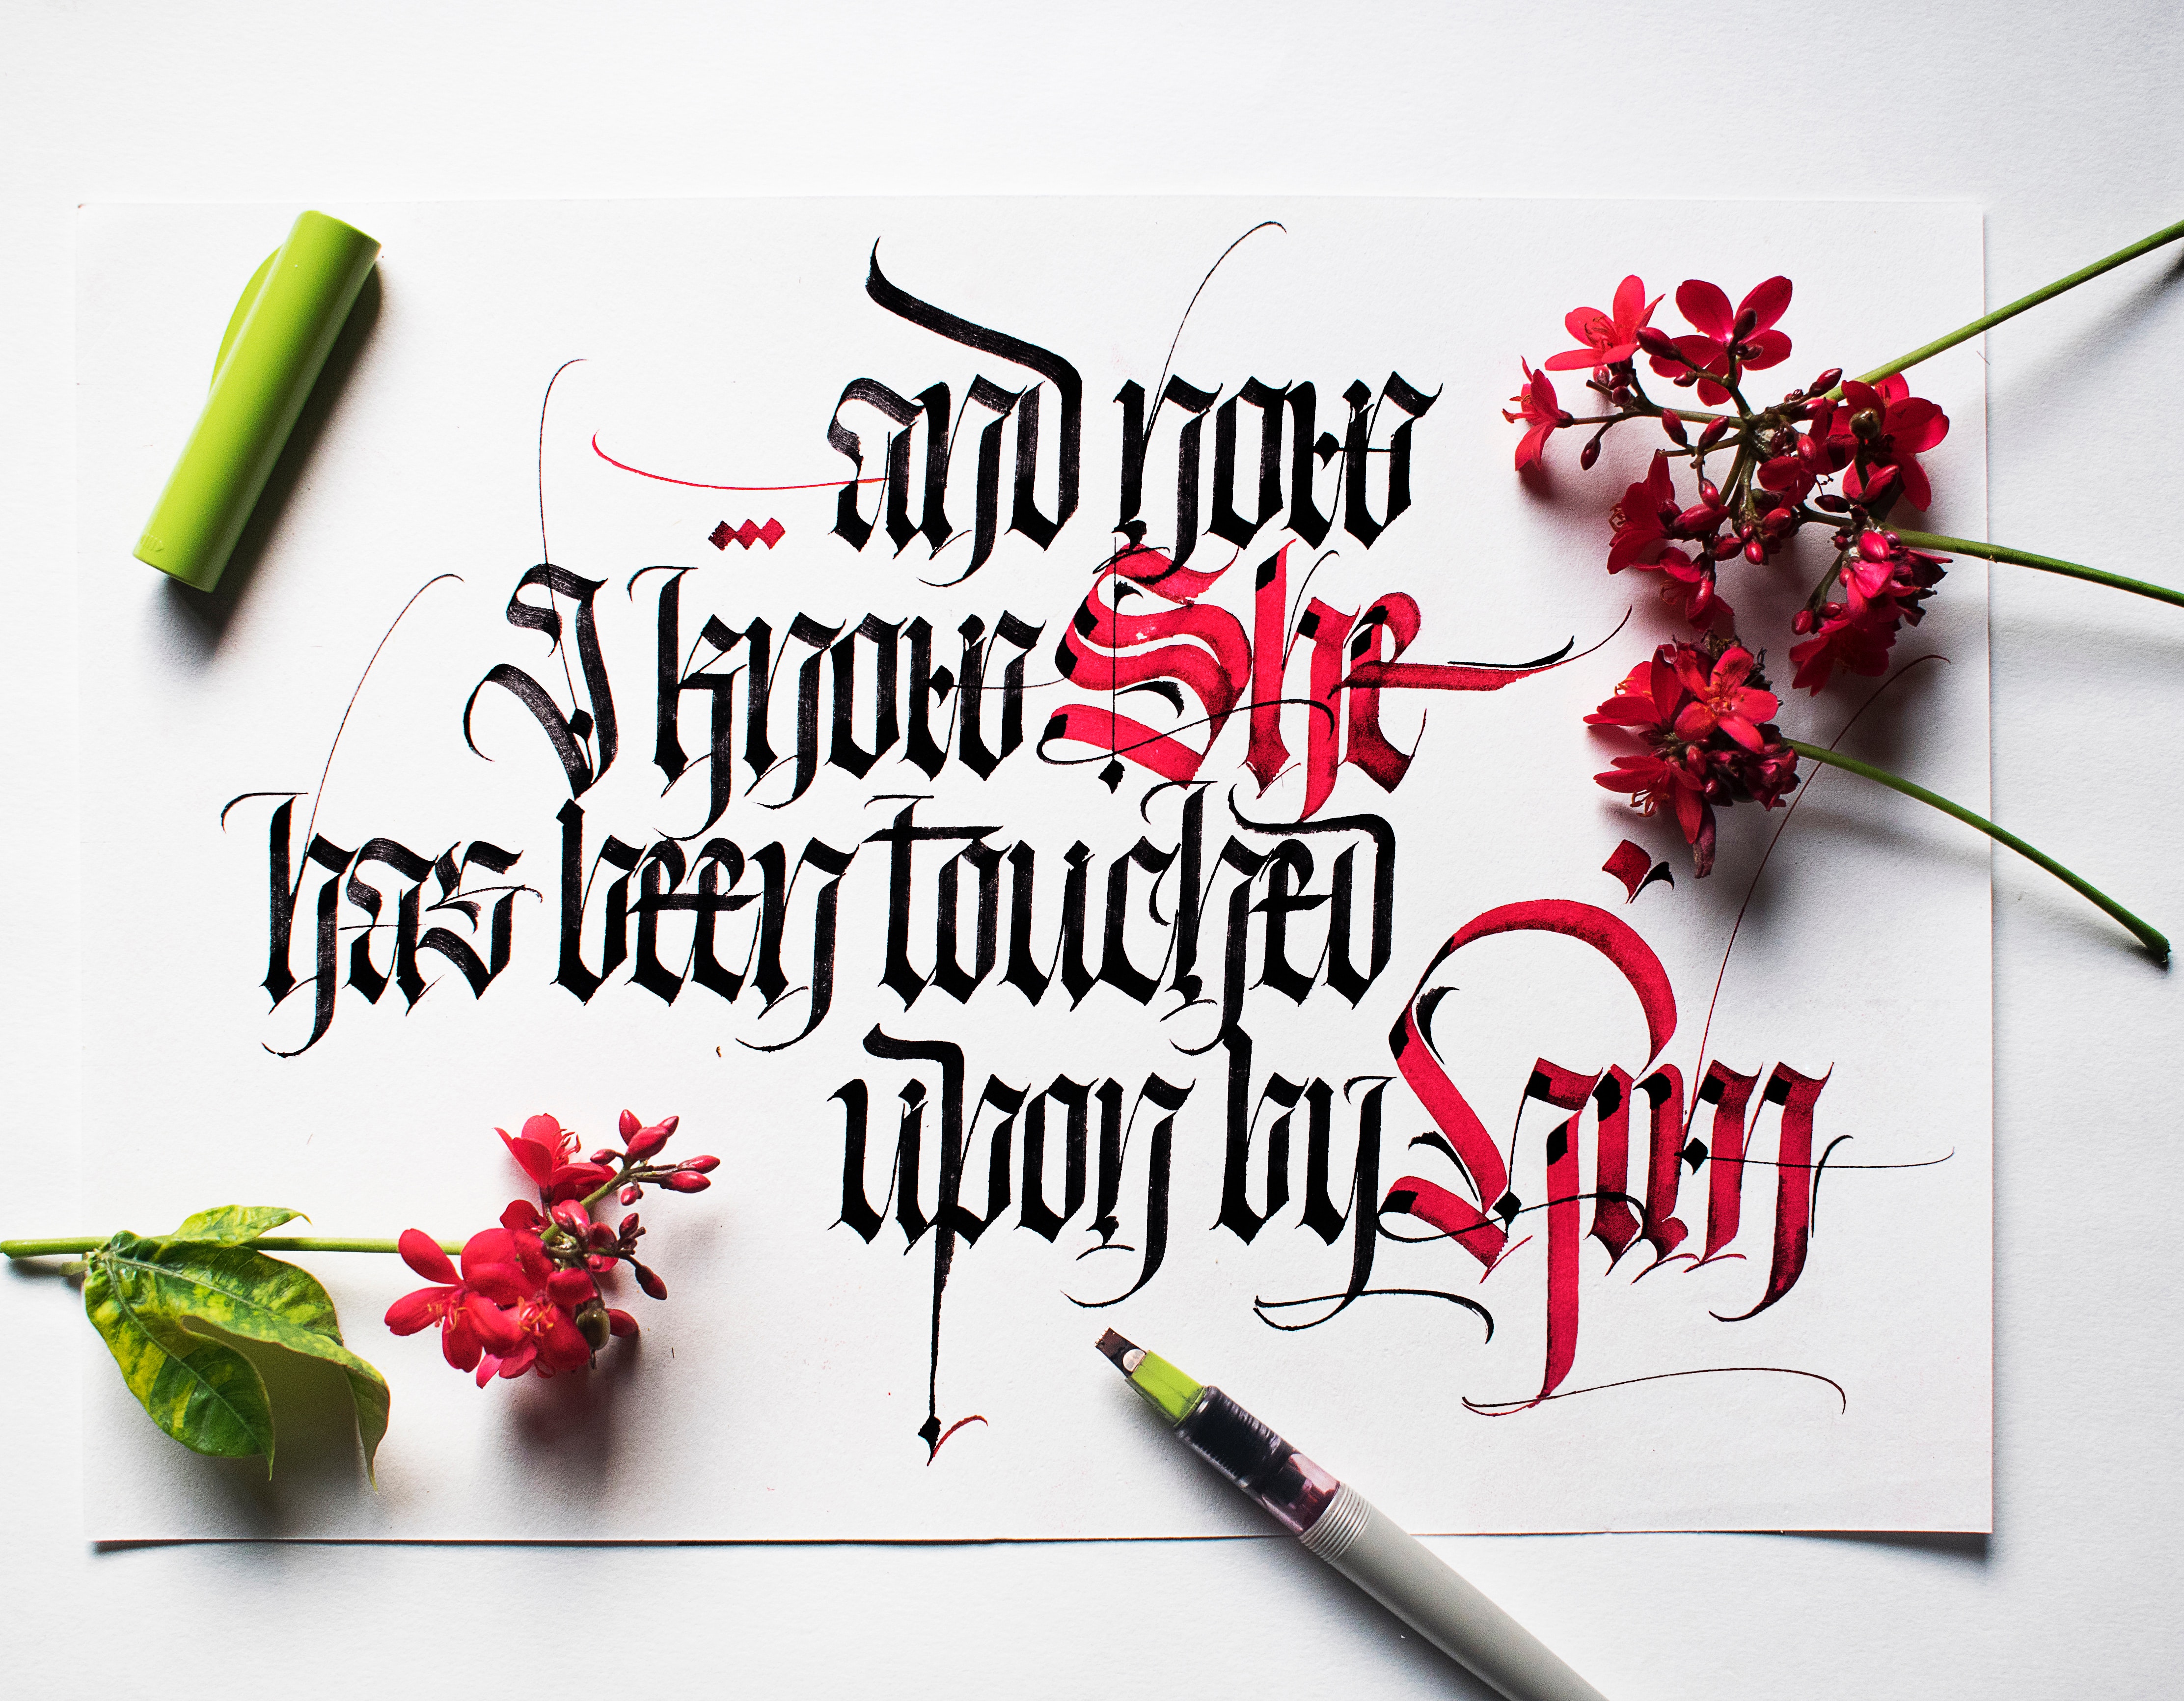 ...and now
I know She
has been touched
upon by